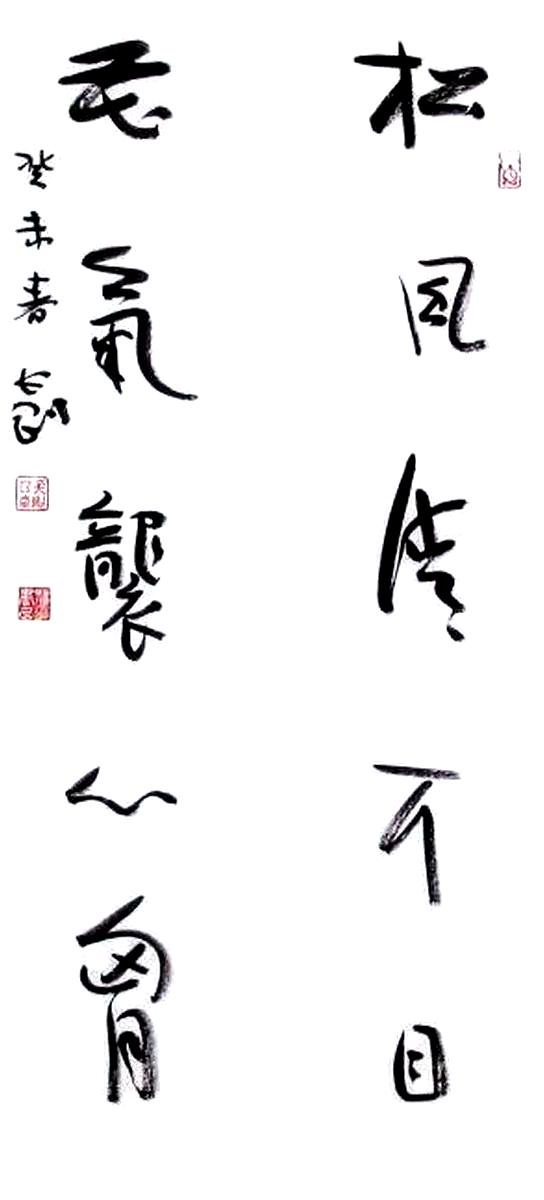 松風清耳目
花氣襲心胷
癸未春